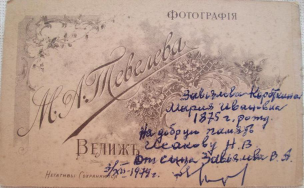 Фотографія
М. А. Тевелева
Велижъ
Негативы Сохраняются
Завьялова
Мария Ивановна
1875 г. рожд.
На добрую память
Исакову Н. В
От сына Завьялова В. А.
1974 г.